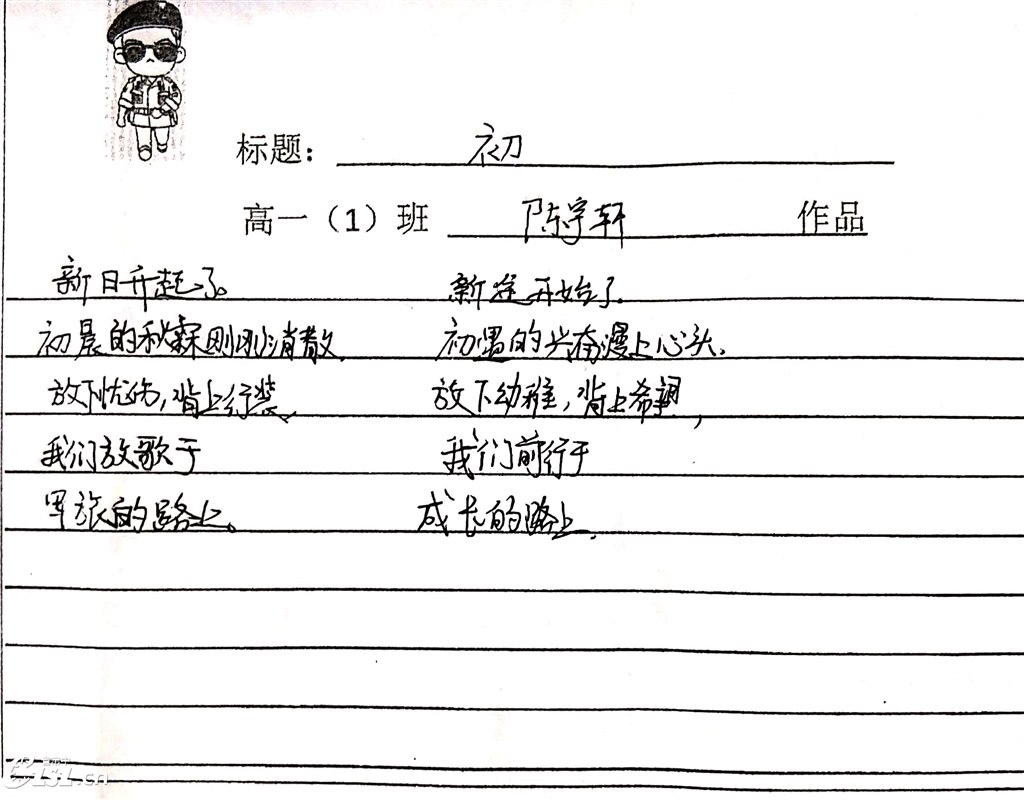 标题： 初
高一（1）班 陈宇轩 作品
新日升起了。 新途开始了。
初晨的秋霖刚刚消散， 初遇的兴奋漫上心头。
放下忧伤，背上行装， 放下幼稚，背上希望，
我们放歌于 我们前行于
军旅的路上。 成长的路上。